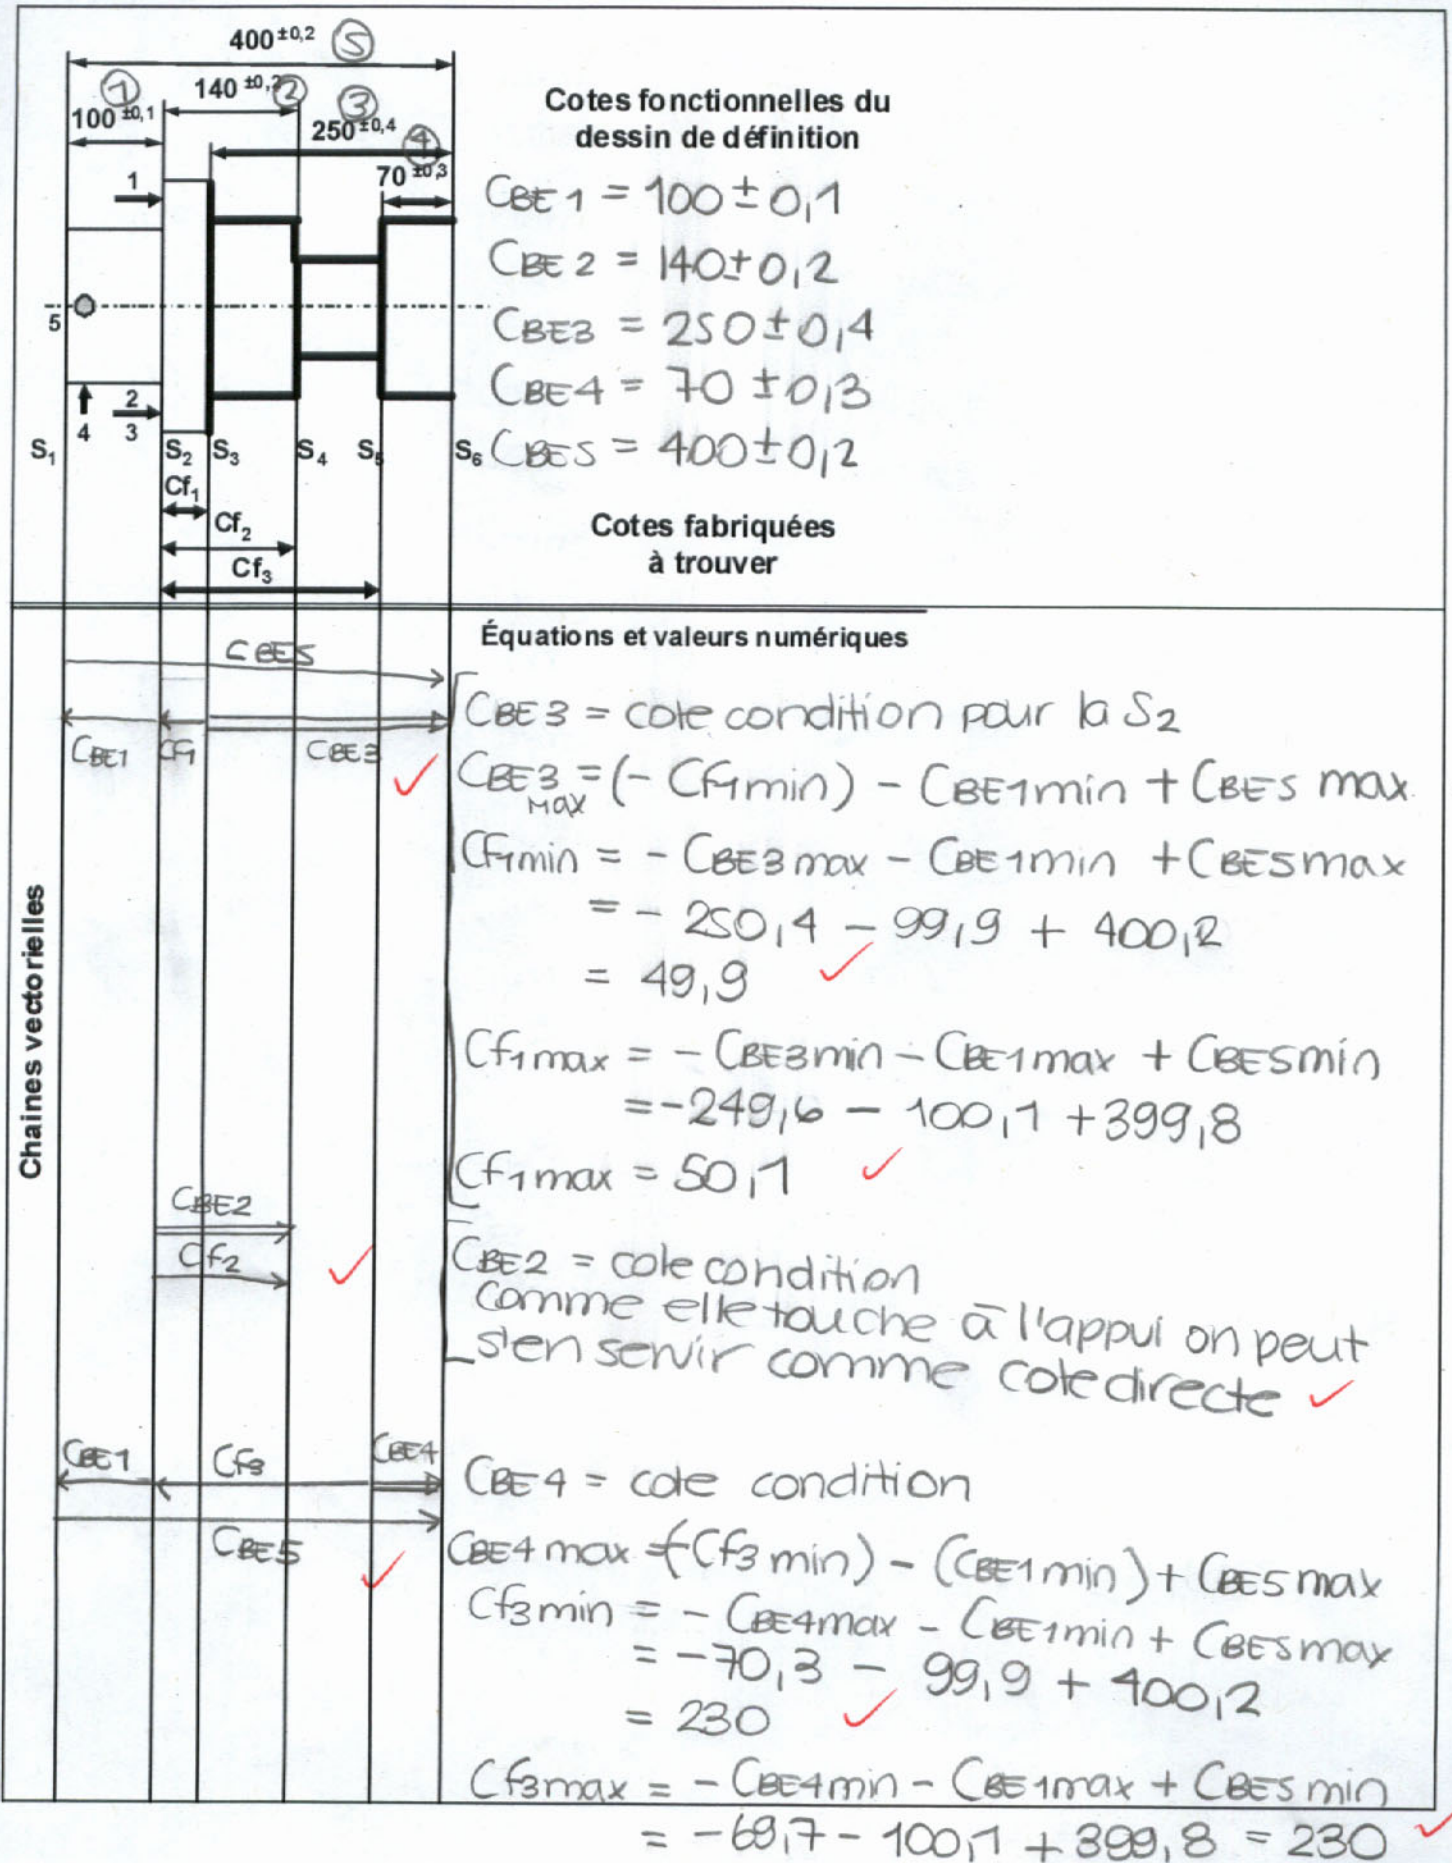 400 ±0,2 ⑤
① 140 ±0,2 ②
100 ±0,1
③
250 ±0,4
④
70 ±0,3
1
5
4
2
3
S1 S2 S3 S4 S5 S6
Cf1
Cf2
Cf3
Cotes fonctionnelles du
dessin de définition
CBE1 = 100 ± 0,1
CBE2 = 140 ± 0,2
CBE3 = 250 ± 0,4
CBE4 = 70 ± 0,3
CBE5 = 400 ± 0,2
Cotes fabriquées
à trouver
Équations et valeurs numériques
Chaines vectorielles
CBE5
CBE1 Cf1 CBE3
CBE3 = cote condition pour la S2
CBE3 max = (- Cf1 min) - CBE1 min + CBE5 max
Cf1 min = - CBE3 max - CBE1 min + CBE5 max
= - 250,4 - 99,9 + 400,2
= 49,9
Cf1 max = - CBE3 min - CBE1 max + CBE5 min
= -249,6 - 100,1 + 399,8
Cf1 max = 50,1
CBE2
Cf2
CBE2 = cote condition
comme elle touche à l'appui on peut
s'en servir comme cote directe
CBE1 Cf3 CBE4
CBE5
CBE4 = cote condition
CBE4 max = -(Cf3 min) - (CBE1 min) + CBE5 max
Cf3 min = - CBE4 max - CBE1 min + CBE5 max
= -70,3 - 99,9 + 400,2
= 230
Cf3 max = - CBE4 min - CBE1 max + CBE5 min
= -69,7 - 100,1 + 399,8 = 230